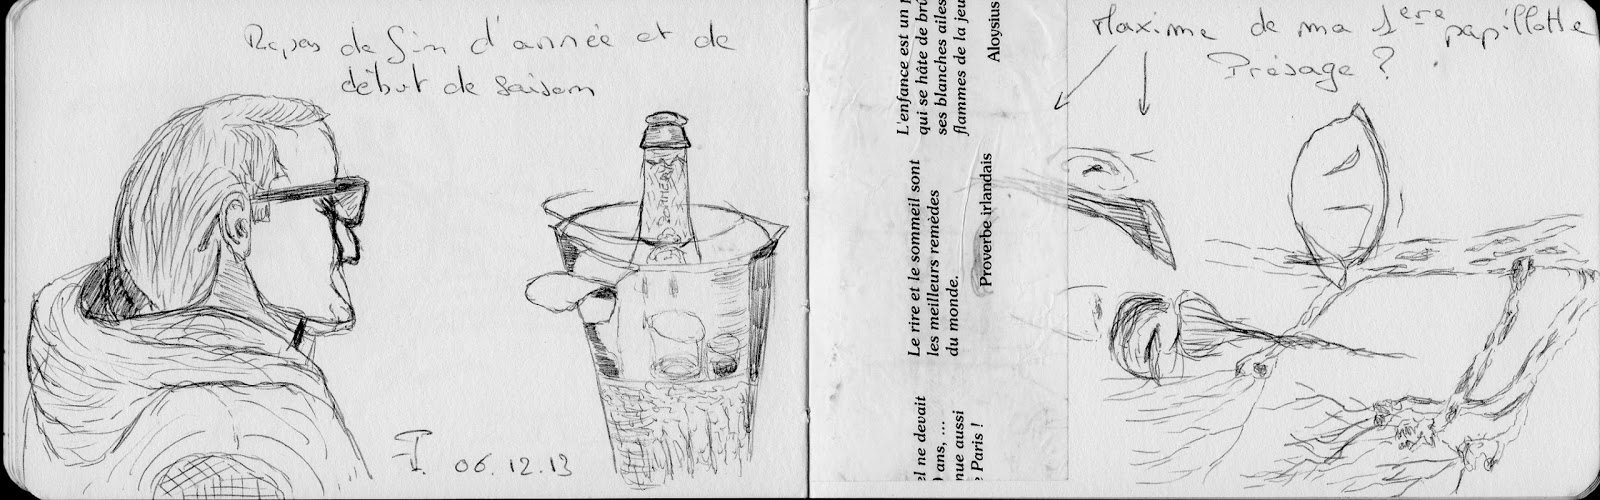 Repas de fin d'année et de
début de saison
06.12.13
L'enfance est un
qui se hâte de brû
ses blanches ailes
flammes de la jeu
Aloysius
Le rire et le sommeil sont
les meilleurs remèdes
du monde.
Proverbe irlandais
el ne devait
ans, ...
nue aussi
e Paris !
Maxime de ma 1ere papillotte
Présage ?